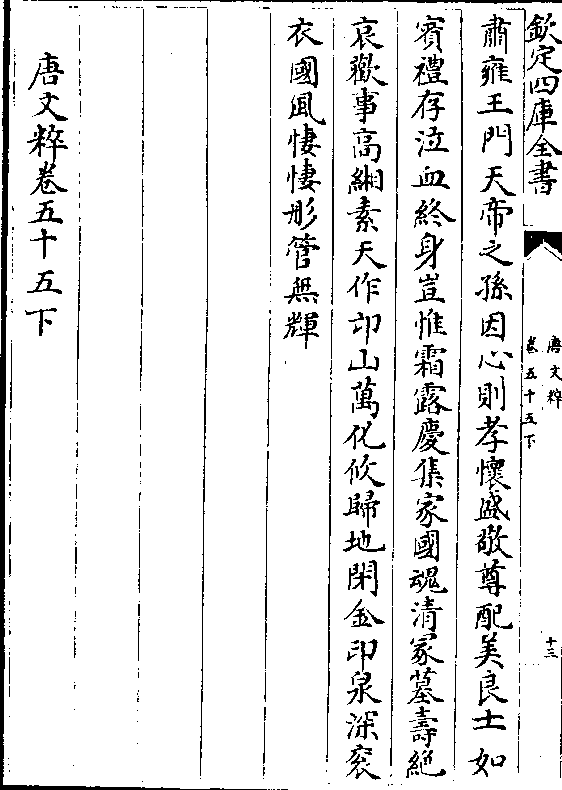 欽定四庫全書
唐文粹
卷五十五下
十三
肅雍王門天帝之孫因心則孝懷盛敬尊配美良士如
賓禮存泣血終身豈惟霜露慶集家國魂清冢墓壽絶
哀歡事高緗素天作卭山萬化攸歸地閉金印泉深衮
衣國風悽悽彤管無輝
唐文粹卷五十五下